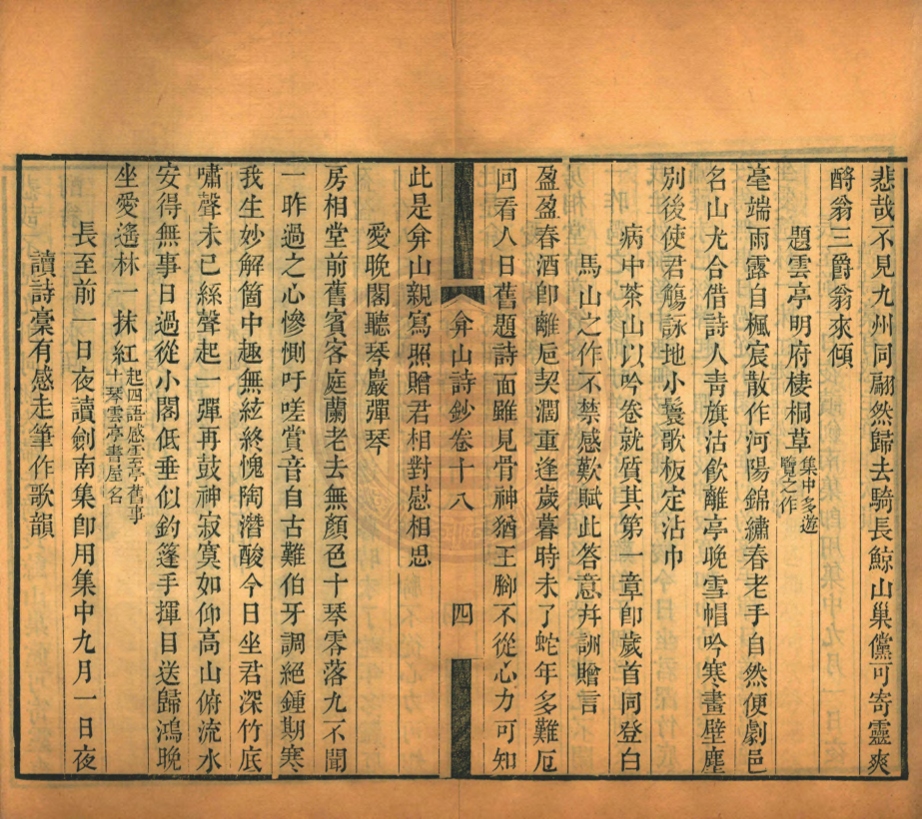 悲哉不見九州同翩然歸去騎長鯨山巢儻可寄靈爽
酹翁三爵翁來傾
題雲亭明府棲桐草集中多遊覽之作
亳端雨露自楓宸散作河陽錦繡春老手自然便劇邑
名山尤合借詩人靑旗沽飮離亭晚雪帽吟寒畫壁塵
別後使君觴詠地小鬟歌板定沾巾
病中茶山以吟卷就質其第一章卽歲首同登白
馬山之作不禁感歎賦此答意幷詶贈言
盈盈春酒卽離卮契濶重逢歲暮時未了蛇年多難厄
回看人日舊題詩面雖見骨神猶王腳不從心力可知
此是弇山親寫照贈君相對慰相思
弇山詩鈔卷十八
四
愛晚閣聽琴巖彈琴
房相堂前舊賓客庭蘭老去無顏色十琴零落九不聞
一昨過之心慘惻吁嗟賞音自古難伯牙調絕鍾期寒
我生妙解箇中趣無絃終愧陶潛酸今日坐君深竹底
嘯聲未已絲聲起一彈再鼓神寂寞如仰高山俯流水
安得無事日過從小閣低垂似釣篷手揮目送歸鴻晚
坐愛遙林一抹紅起四語感雲亭舊事十琴雲亭書屋名
長至前一日夜讀劍南集卽用集中九月一日夜
讀詩稾有感走筆作歌韻